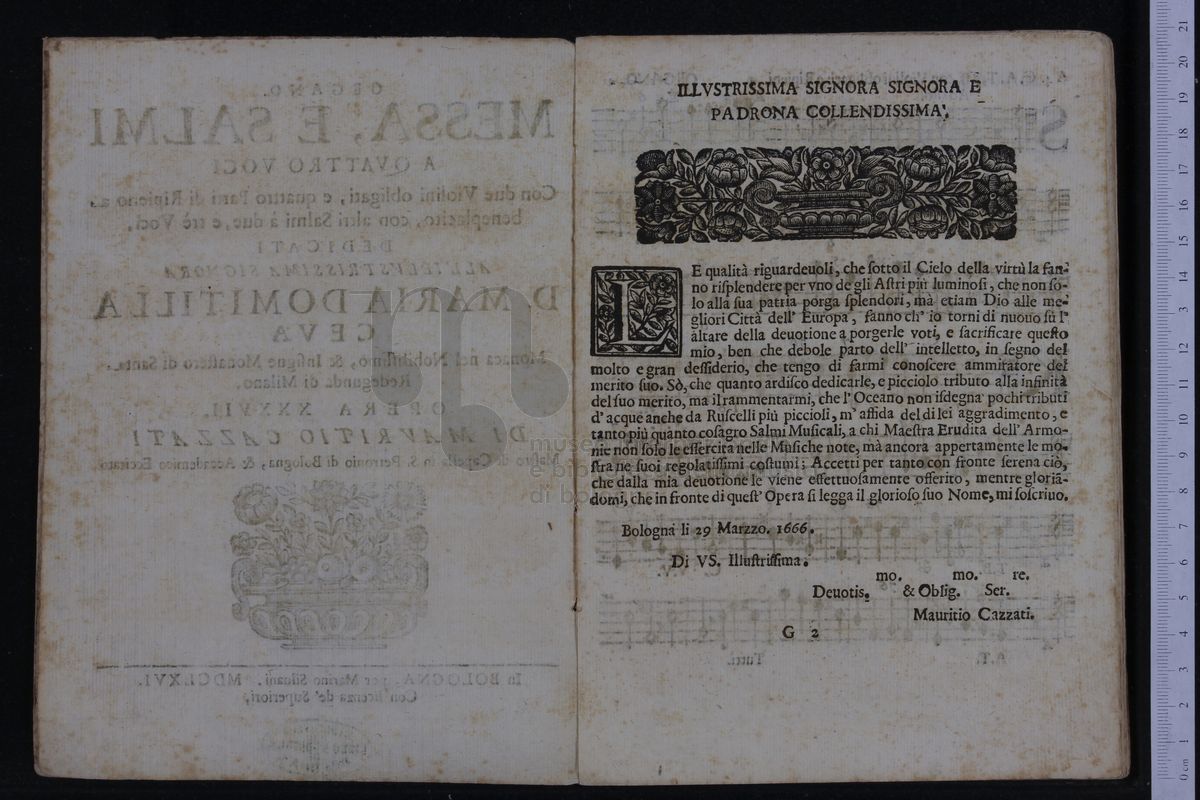 ILLVSTRISSIMA SIGNORA SIGNORA E
PADRONA COLLENDISSIMA,
LE qualità riguardeuoli, che sotto il Cielo della virtù la fan-
no risplendere per vno de gli Astri più luminosi, che non so-
lo alla sua patria porga splendori, mà etiam Dio alle me-
gliori Città dell' Europa, fanno ch' io torni di nuouo sù l'
altare della deuotione a porgerle voti, e sacrificare questo
mio, ben che debole parto dell' intelletto, in segno del
molto e gran dessiderio, che tengo di farmi conoscere ammiratore del
merito suo. Sò, che quanto ardisco dedicarle, e picciolo tributo alla infinità
del suo merito, ma il rammentarmi, che l' Oceano non isdegna pochi tributi
d' acque anche da Ruscelli più piccioli, m' affida del di lei aggradimento, e
tanto più quanto cosagro Salmi Musicali, a chi Maestra Erudita dell' Armo-
nie non solo le essercita nelle Musiche note, mà ancora appertamente le mo-
stra ne suoi regolatissimi costumi; Accetti per tanto con fronte serena ciò,
che dalla mia deuotione le viene effettuosamente offerito, mentre gloriā-
domi, che in fronte di quest' Opera si legga il glorioso suo Nome, mi soscriuo.
Bologna li 29 Marzzo. 1666.
Di VS. Illustrissima.
mo. mo. re.
Deuotis. & Oblig. Ser.
Mauritio Cazzati.
G 2
ORGANO.
MESSA, E SALMI
A QVATTRO VOCI
Con due Violini obligati, e quattro Parti di Ripieno a
beneplacito, con altri Salmi à due, e trè Voci,
DEDICATI
ALL'ILLVSTRISSIMA SIGNORA
D. MARIA DOMITILLA
CEVA
Monaca nel Nobilissimo, & Insigne Monastero di Santa
Redegunda di Milano.
OPERA XXXVII.
DI MAVRITIO CAZZATI
Mastro di Capella in S. Petronio di Bologna, & Accademico Eccitato.
In BOLOGNA, per Marino Siluani. MDCLXVI.
Con licenza de' Superiori,
Tutti.
A.T.